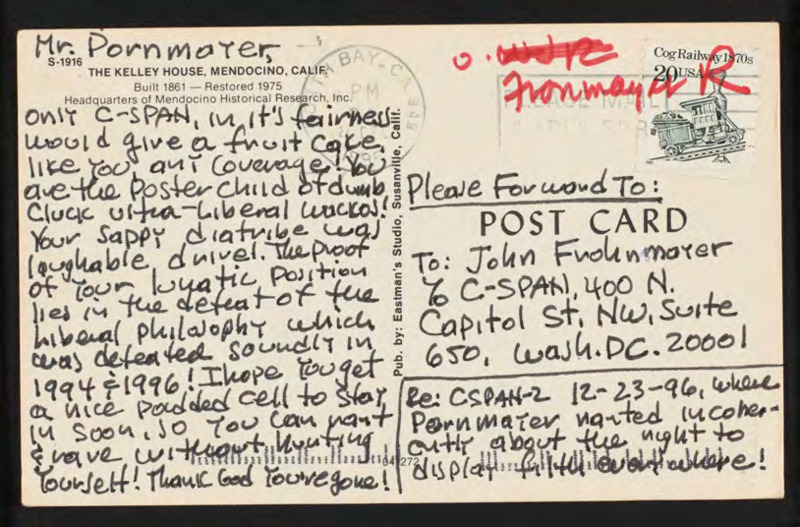 Mr. Pornmayer,
S-1916
THE KELLEY HOUSE, MENDOCINO, CALIF.
Built 1861 — Restored 1975
Headquarters of Mendocino Historical Research, Inc.
Only C-SPAN, in it's fairness
would give a fruit cake,
like you, any coverage! You
are the poster child of dumb
cluck ultra-liberal wackos!
Your sappy diatribe was
laughable drivel. The proof
of your lunatic position
lies in the defeat of the
liberal philosophy which
was defeated soundly in
1994 & 1996! I hope you get
a nice padded cell to stay
in soon, so you can rant
& rave without hurting
yourself! Thank God you're gone!
Pub. by: Eastman's Studio, Susanville, Calif.
BAY, CA
PM
Fronmayer
Cog Railway 1870s
20 USA
Please Forward To:
POST CARD
To: John Frohnmayer
% C-SPAN, 400 N.
Capitol St, NW, Suite
650, Wash. DC. 20001
Re: CSPAN-2 12-23-96, where
Pornmayer ranted incoher-
ently about the right to
display filth everywhere!